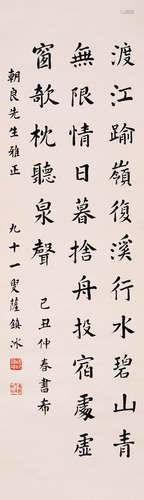 渡江踰嶺復溪行水碧山青
無限情日暮捨舟投宿處虛
窗欹枕聽泉聲
己丑仲春書希
朝良先生雅正
九十一叟薩鎮冰